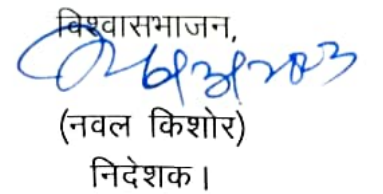 विश्वासभाजन,
(नवल किशोर)
निदेशक।